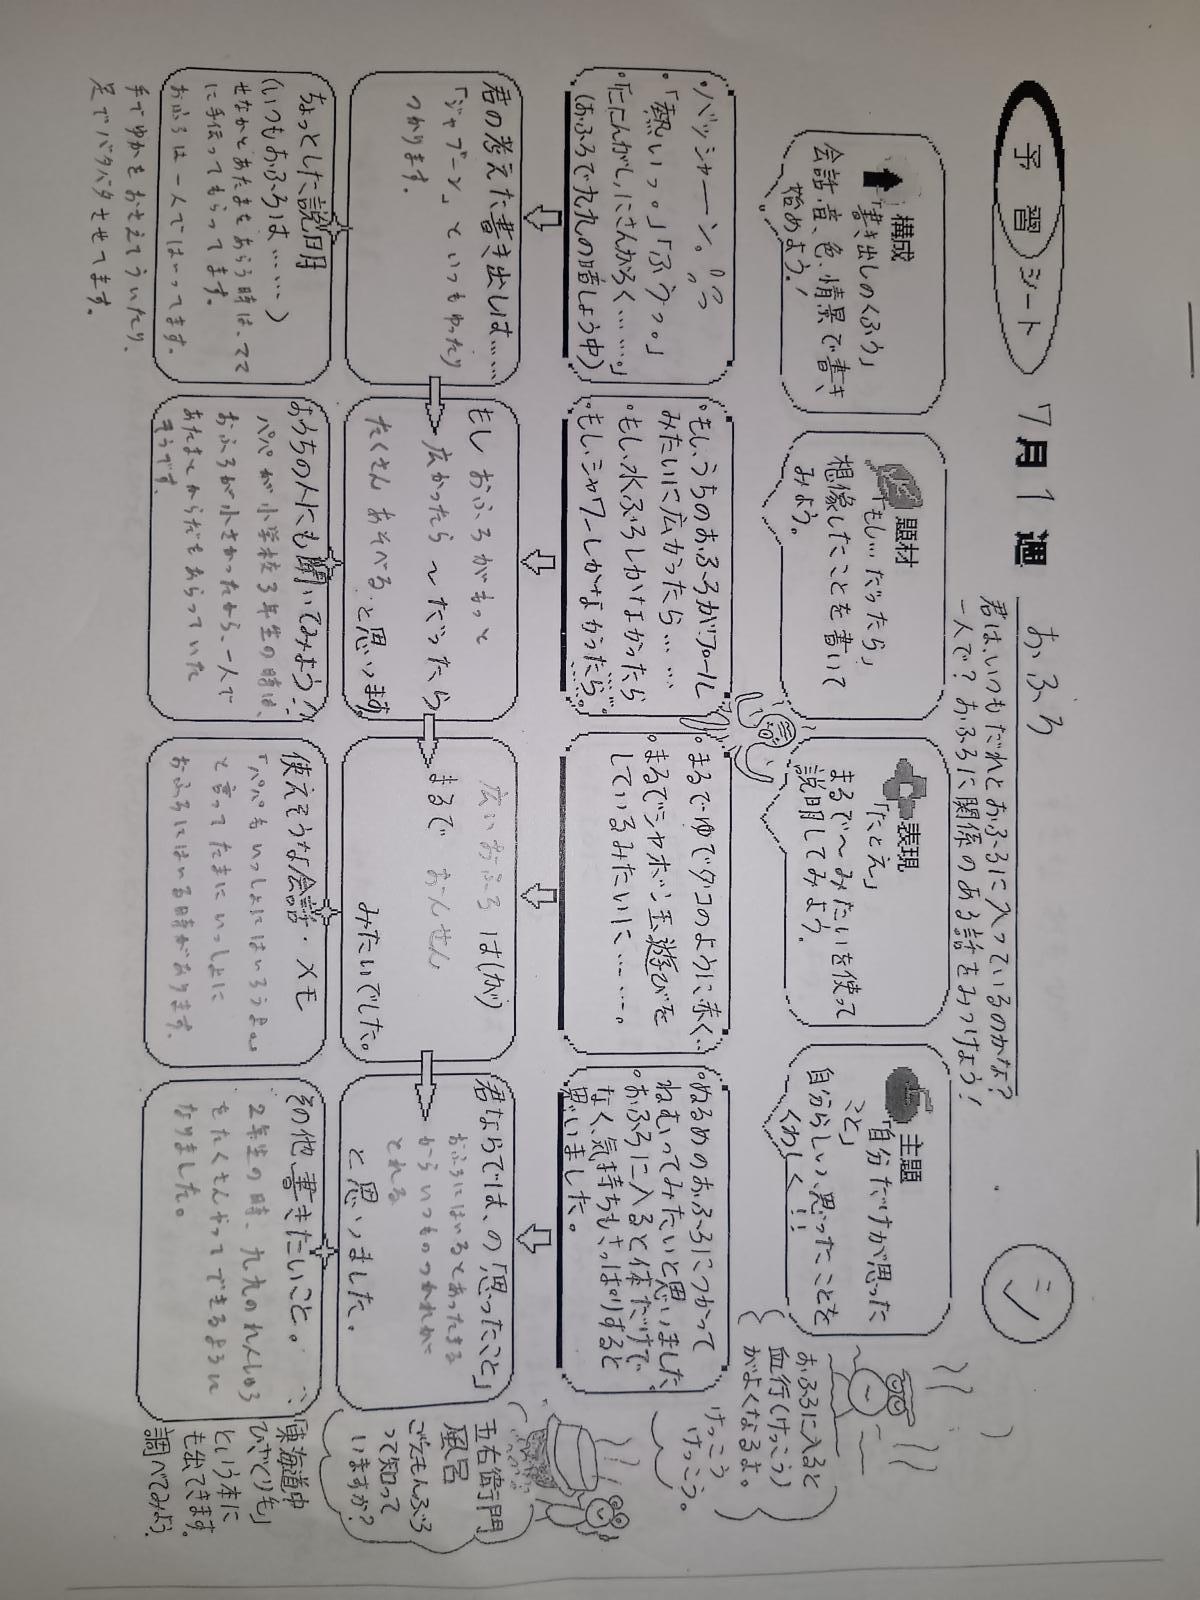 予習シート
7月1週
おふろ
君は、いつもだれとおふろに入っているのかな?
一人で?おふろに関係のある話をみつけよう!
シ
構成
「書き出しのくふう」
会話、音、色、情景で書き
始めよう!
題材
「もし…だったら」
想像したことを書いて
みよう。
表現
「たとえ」
まるで〜みたいを使って
説明してみよう。
主題
「自分だけが思った
こと」
自分らしい、思ったことを
くわしく!!
おふろに入ると
血行(けっこう)
がよくなるよ。
けっこう
けっこう。
・バッシャーン。
・「熱いっ。」「ふうっ。」
・「ににんがし、にさんがろく……。」
(おふろで九九の暗しょう中)
・もし、うちのおふろがプール
みたいに広かったら……
・もし、水ぶろしかなかったら
・もし、シャワーしかなかったら…。
・まるでゆでダコのように赤く…
・まるでシャボン玉遊びを
しているみたいに……。
・ぬるめのおふろにつかって
ねむってみたいと思いました。
・おふろに入ると体だけで
なく、気持ちもさっぱりすると
思いました。
君の考えた書き出しは……
「ジャブーン」といつもゆったり
つかります。
もしおふろがもっと
広かったら〜だったら
たくさんあそべると思います。
広いおふろは(が)
まるでおんせん
みたいでした。
君ならでは、の「思ったこと」
おふろにはいるとあったまる
からいつものつかれが
とれる
と思いました。
五右衛門
風呂
ごえもんぶろ
って知って
いますか?
ちょっとした説明
(いつもおふろは……)
せなかとあたまをあらう時は、ママ
に手伝ってもらってます。
おふろは一人ではいってます。
手でゆかをおさえてういたり、
足でバタバタさせてます。
おうちの人にも聞いてみよう!
パパが小学校3年生の時は、
おふろが小さかったから、一人で
あたまとからだもあらっていた
そうです。
使えそうな会話・メモ
「パパもいっしょにはいろうよ。」
と言ってたまにいっしょに
おふろにはいる時があります。
その他、書きたいこと。
2年生の時、九九のれんしゅう
をたくさんやってできるように
なりました。
「東海道中
ひざくり毛」
という本に
も出てきます。
調べてみよう。